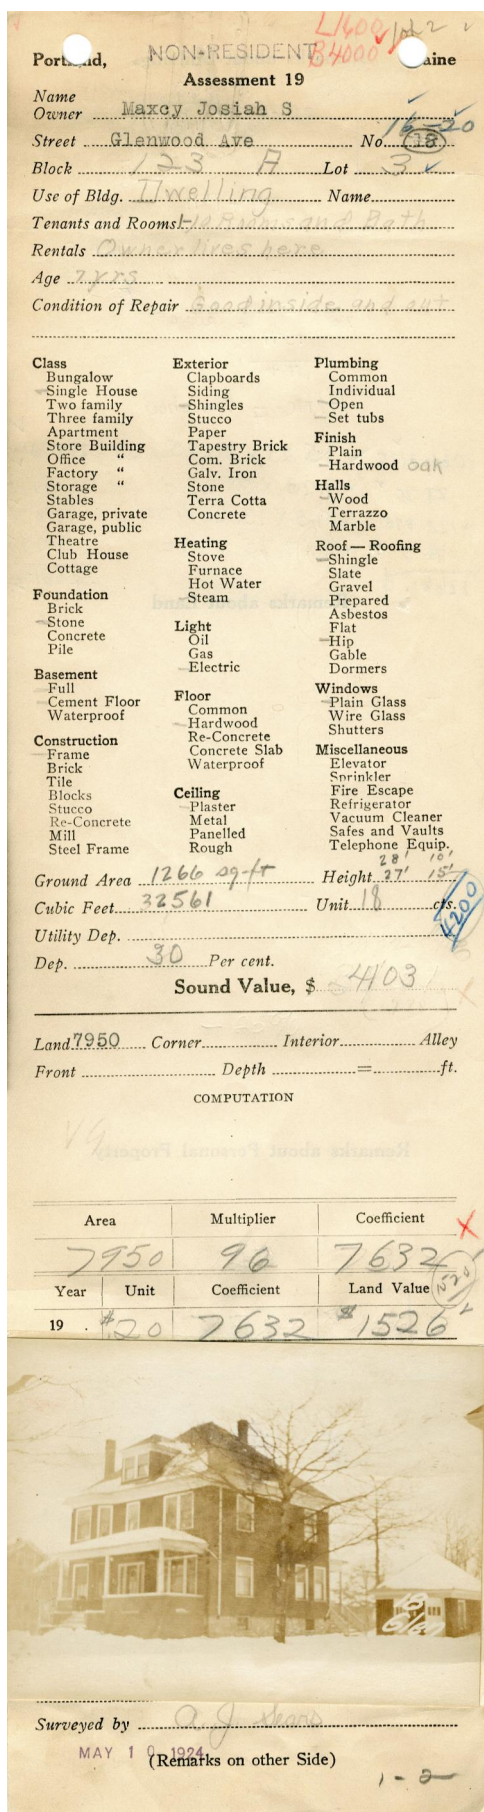 L1600
B4000
1 of 2
Portland, NON-RESIDENT Maine
Assessment 19
Name
Owner Maxcy Josiah S
16-20
Street Glenwood Ave No. 18
Block 123 A Lot 3
Use of Bldg. Dwelling Name
Tenants and Rooms 1-10 Rooms and Bath
Rentals Owner lives here
Age 7 yrs
Condition of Repair Good inside and out
Class
Bungalow
Single House
Two family
Three family
Apartment
Store Building
Office "
Factory "
Storage "
Stables
Garage, private
Garage, public
Theatre
Club House
Cottage
Foundation
Brick
Stone
Concrete
Pile
Basement
Full
Cement Floor
Waterproof
Construction
Frame
Brick
Tile
Blocks
Stucco
Re-Concrete
Mill
Steel Frame
Exterior
Clapboards
Siding
Shingles
Stucco
Paper
Tapestry Brick
Com. Brick
Galv. Iron
Stone
Terra Cotta
Concrete
Heating
Stove
Furnace
Hot Water
Steam
Light
Oil
Gas
Electric
Floor
Common
Hardwood
Re-Concrete
Concrete Slab
Waterproof
Ceiling
Plaster
Metal
Panelled
Rough
Plumbing
Common
Individual
Open
Set tubs
Finish
Plain
Hardwood oak
Halls
Wood
Terrazzo
Marble
Roof — Roofing
Shingle
Slate
Gravel
Prepared
Asbestos
Flat
Hip
Gable
Dormers
Windows
Plain Glass
Wire Glass
Shutters
Miscellaneous
Elevator
Sprinkler
Fire Escape
Refrigerator
Vacuum Cleaner
Safes and Vaults
Telephone Equip.
28' 10'
Ground Area 1266 sq-ft Height 27' 15'
Cubic Feet 32561 Unit 18 cts.
4200
Utility Dep.
Dep. 30 Per cent.
Sound Value, $ 4103
Land 7950 Corner Interior Alley
Front Depth = ft.
COMPUTATION
Area Multiplier Coefficient
7950 96 7632
1520
Year Unit Coefficient Land Value
19 . $.20 7632 $1526
Surveyed by A. J. Sears
MAY 10 1924
(Remarks on other Side)
1-2